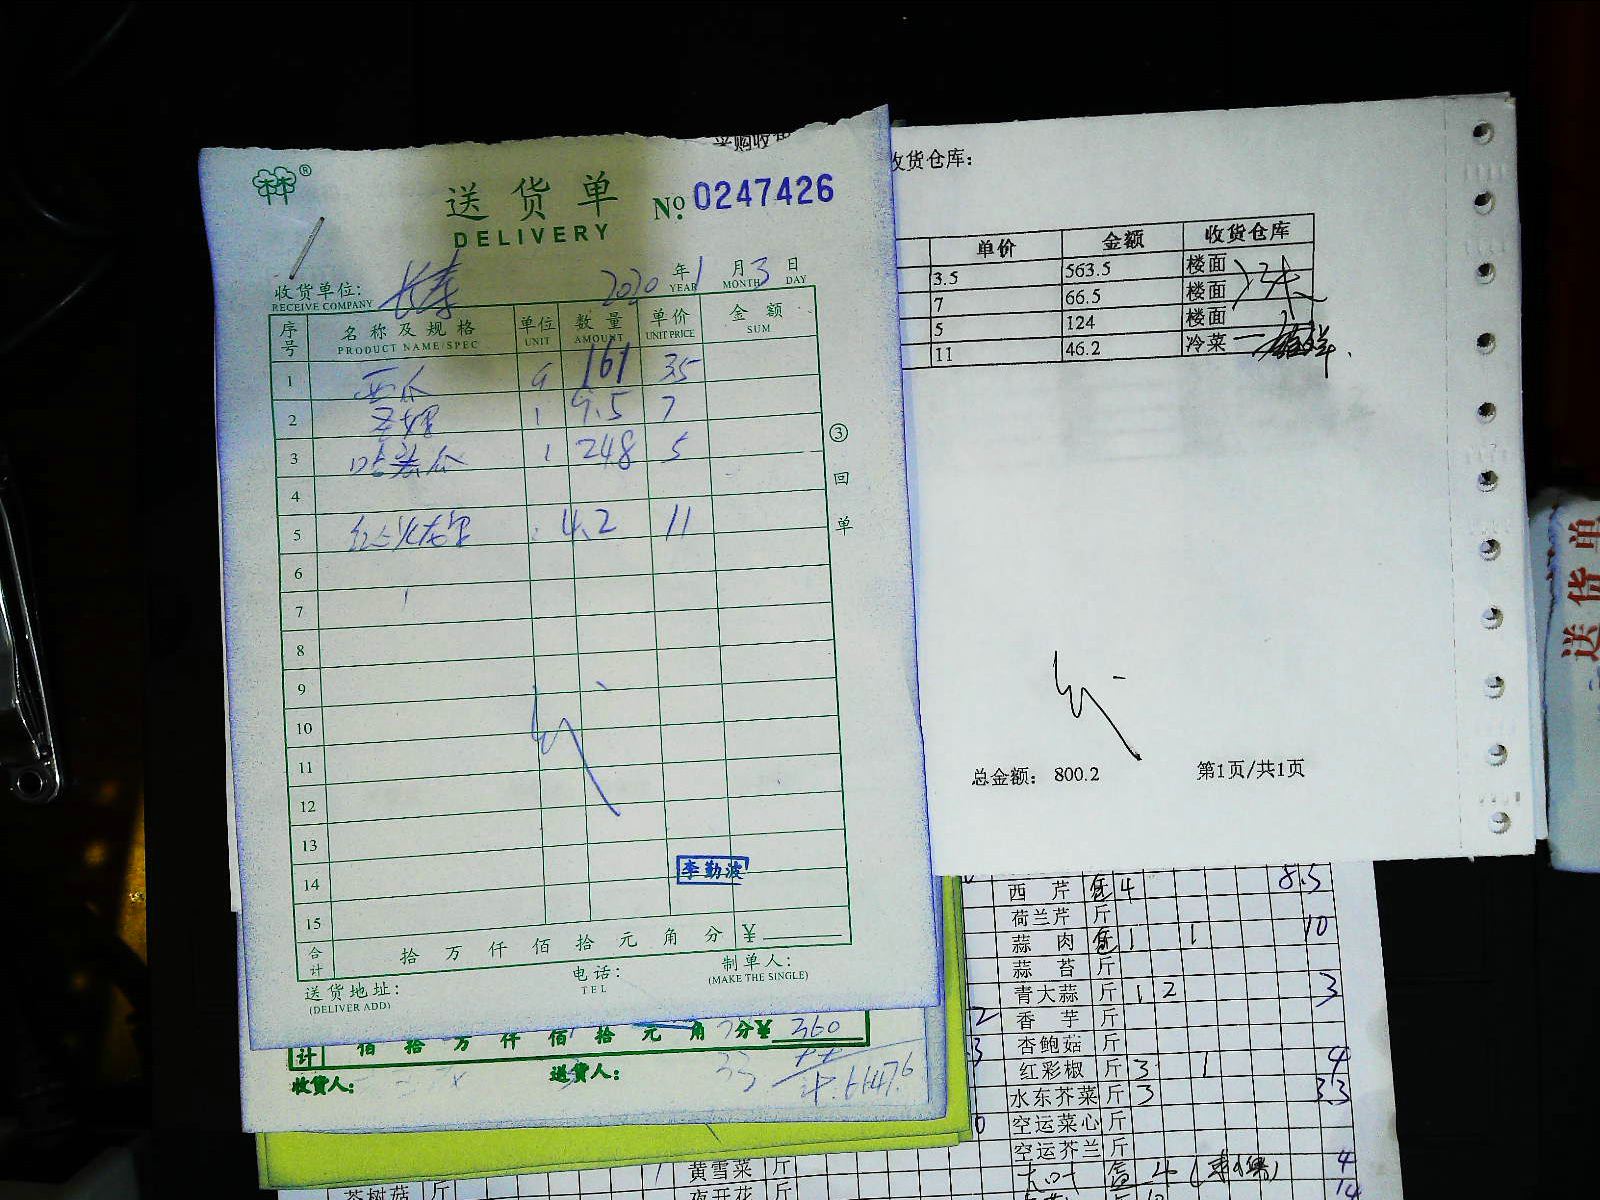 采购收货
送货单
DELIVERY
No. 0247426
收货单位: 长寿
RECEIVE COMPANY
2020 年 1 月 3 日
YEAR MONTH DAY
序号 名称及规格 单位 数量 单价 金额
PRODUCT NAME/SPEC UNIT AMOUNT UNIT PRICE SUM
1 西瓜 161 35
2 7 9.5
3 哈密瓜 248 5
4
5 红心火龙果 4.2 11
6
7
8
9
10
11
12
13
李勤波
14
15
合计 拾 万 仟 佰 拾 元 角 分 ¥
送货地址:
(DELIVER ADD)
电话:
TEL
制单人:
(MAKE THE SINGLE)
③回单
计 佰 拾 万 仟 佰 拾 元 角 分 ¥ 360
收货人: 送货人:
6147.6
收货仓库:
单价 金额 收货仓库
3.5 563.5 楼面
7 66.5 楼面
5 124 楼面
11 46.2 冷菜
总金额: 800.2 第1页/共1页
送货单
西芹 4 8.5
荷兰芹 斤
蒜肉 1 1 10
蒜苔 斤
青大蒜 斤 1 2 3
香芋 斤
杏鲍菇 斤
红彩椒 斤 3 1 4
水东芥菜 斤 3 3.3
空运菜心 斤
空运芥兰 斤
4 4
黄雪菜 斤
茶树菇 斤
夜开花 斤
14